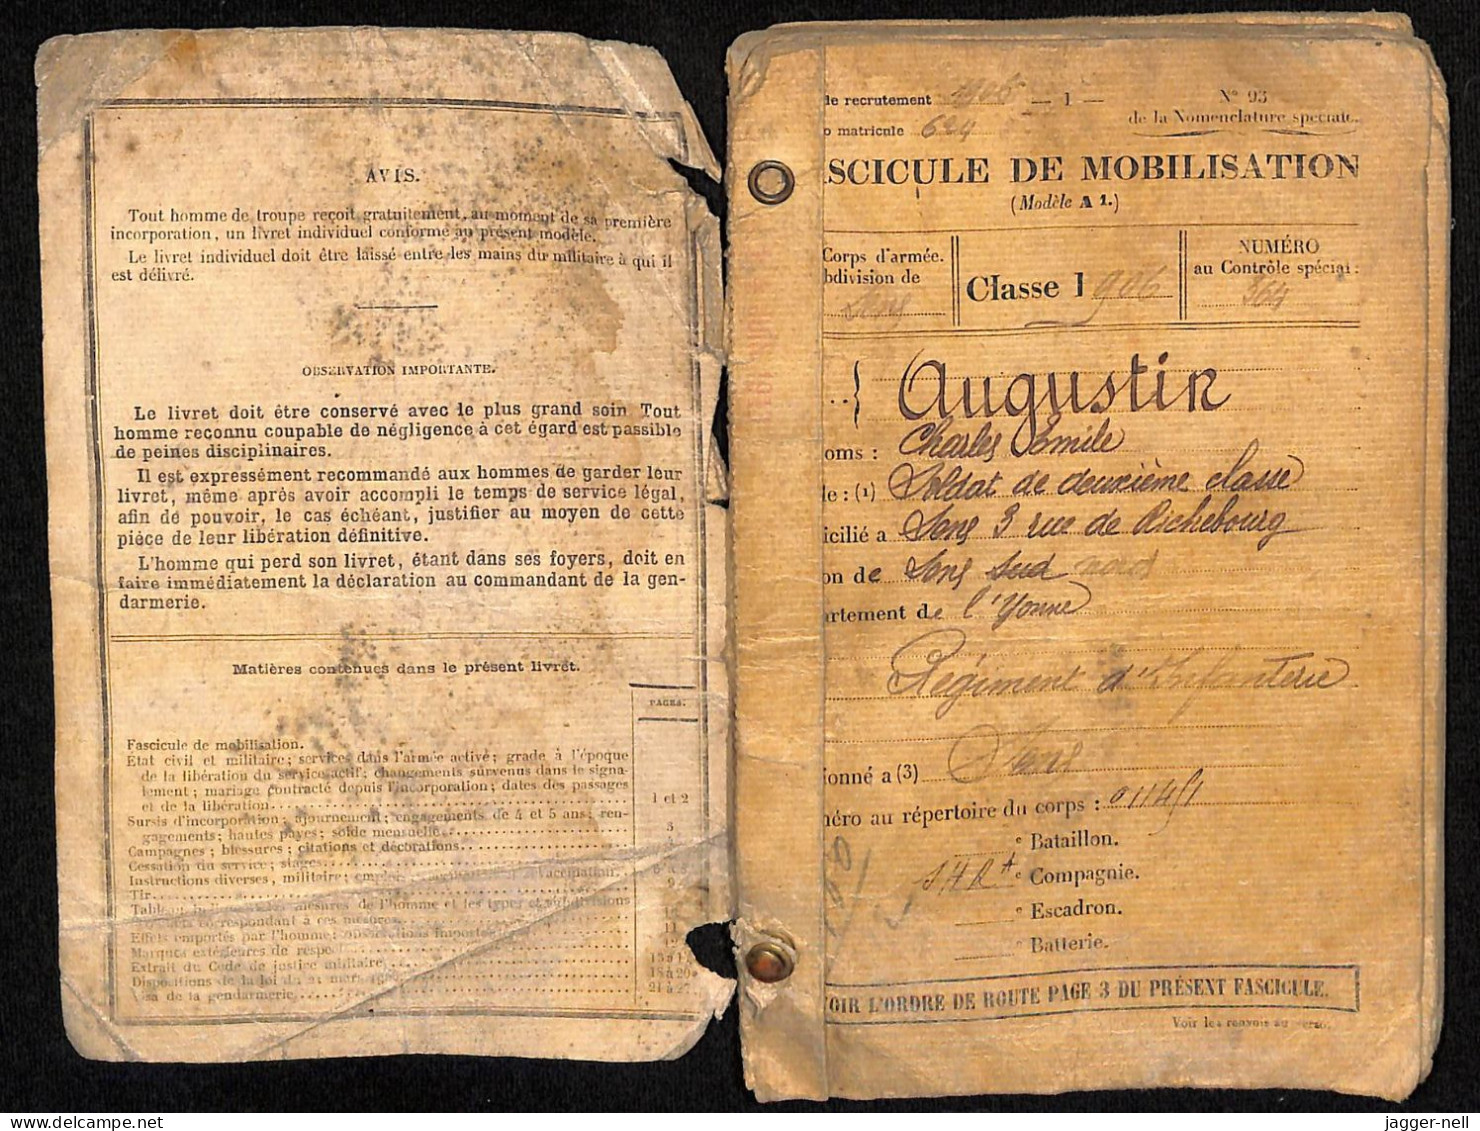 AVIS.
Tout homme de troupe reçoit gratuitement, au moment de sa première
incorporation, un livret individuel conforme au présent modèle.
Le livret individuel doit être laissé entre les mains du militaire à qui il
est délivré.
OBSERVATION IMPORTANTE.
Le livret doit être conservé avec le plus grand soin Tout
homme reconnu coupable de négligence à cet égard est passible
de peines disciplinaires.
Il est expressément recommandé aux hommes de garder leur
livret, même après avoir accompli le temps de service légal,
afin de pouvoir, le cas échéant, justifier au moyen de cette
pièce de leur libération définitive.
L'homme qui perd son livret, étant dans ses foyers, doit en
faire immédiatement la déclaration au commandant de la gen-
darmerie.
Matières contenues dans le présent livret.
PAGES.
Fascicule de mobilisation.
Etat civil et militaire; services dans l'armée active; grade à l'époque
de la libération du service actif; changements survenus dans le signa-
lement; mariage contracté depuis l'incorporation; dates des passages
et de la libération 1 et 2
Sursis d'incorporation; ajournement; engagements de 4 et 5 ans; ren-
gagements; hautes payes; solde mensuelle 3
Campagnes; blessures; citations et décorations
Cessation du service; stages
Instructions diverses, militaire; vaccination.
Tir
mesures de l'homme et les types et subdivisions
correspondant à ces mesures
Effets emportés par l'homme;
Marques extérieures de respect
Extrait du Code de justice militaire
Dispositions de la loi du 21 mars
Visa de la gendarmerie 21 à 27
de recrutement 1906 — 1 — N° 93
o matricule 624 de la Nomenclature spéciale.
SCICULE DE MOBILISATION
(Modèle A 1.)
Corps d'armée.
bdivision de
Sens
Classe 1906
NUMÉRO
au Contrôle spécial:
364
Augustin
oms : Charles Emile
le : (1) Soldat de deuxième classe
icilié a Sens 3 rue de Richebourg
on de Sens sud nord
rtement de l'Yonne
Régiment d'Infanterie
ionné a (3) Sens
éro au répertoire du corps : 01145
e Bataillon.
SHR e Compagnie.
e Escadron.
e Batterie.
OIR L'ORDRE DE ROUTE PAGE 3 DU PRÉSENT FASCICULE.
Voir les renvois au verso.
jagger-nell